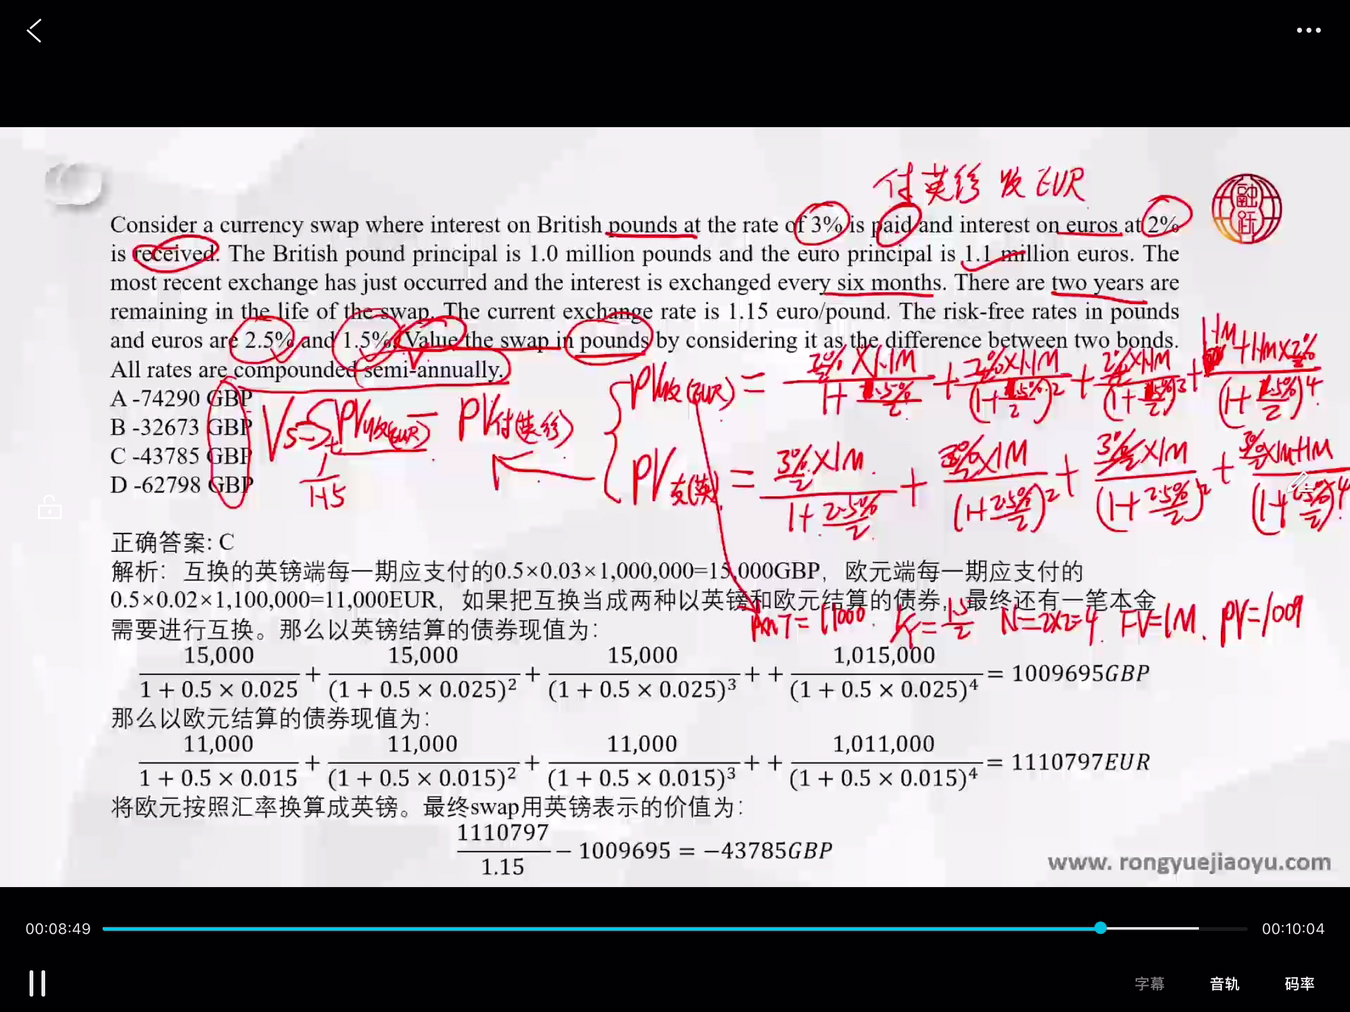 付英镑 收EUR
Consider a currency swap where interest on British pounds at the rate of 3% is paid and interest on euros at 2%
is received. The British pound principal is 1.0 million pounds and the euro principal is 1.1 million euros. The
most recent exchange has just occurred and the interest is exchanged every six months. There are two years are
remaining in the life of the swap. The current exchange rate is 1.15 euro/pound. The risk-free rates in pounds
and euros are 2.5% and 1.5%. Value the swap in pounds by considering it as the difference between two bonds.
All rates are compounded semi-annually.
A -74290 GBP
B -32673 GBP
C -43785 GBP
D -62798 GBP
正确答案: C
解析：互换的英镑端每一期应支付的0.5×0.03×1,000,000=15,000GBP，欧元端每一期应支付的
0.5×0.02×1,100,000=11,000EUR，如果把互换当成两种以英镑和欧元结算的债券，最终还有一笔本金
需要进行互换。那么以英镑结算的债券现值为：
PMT=11000 N=2×2=4 FV=1M PV=1009
15,000/(1+0.5×0.025) + 15,000/(1+0.5×0.025)² + 15,000/(1+0.5×0.025)³ + + 1,015,000/(1+0.5×0.025)⁴ = 1009695GBP
那么以欧元结算的债券现值为：
11,000/(1+0.5×0.015) + 11,000/(1+0.5×0.015)² + 11,000/(1+0.5×0.015)³ + + 1,011,000/(1+0.5×0.015)⁴ = 1110797EUR
将欧元按照汇率换算成英镑。最终swap用英镑表示的价值为：
1110797/1.15 − 1009695 = −43785GBP
www. rongyuejiaoyu.com
00:08:49
00:10:04
字幕 音轨 码率